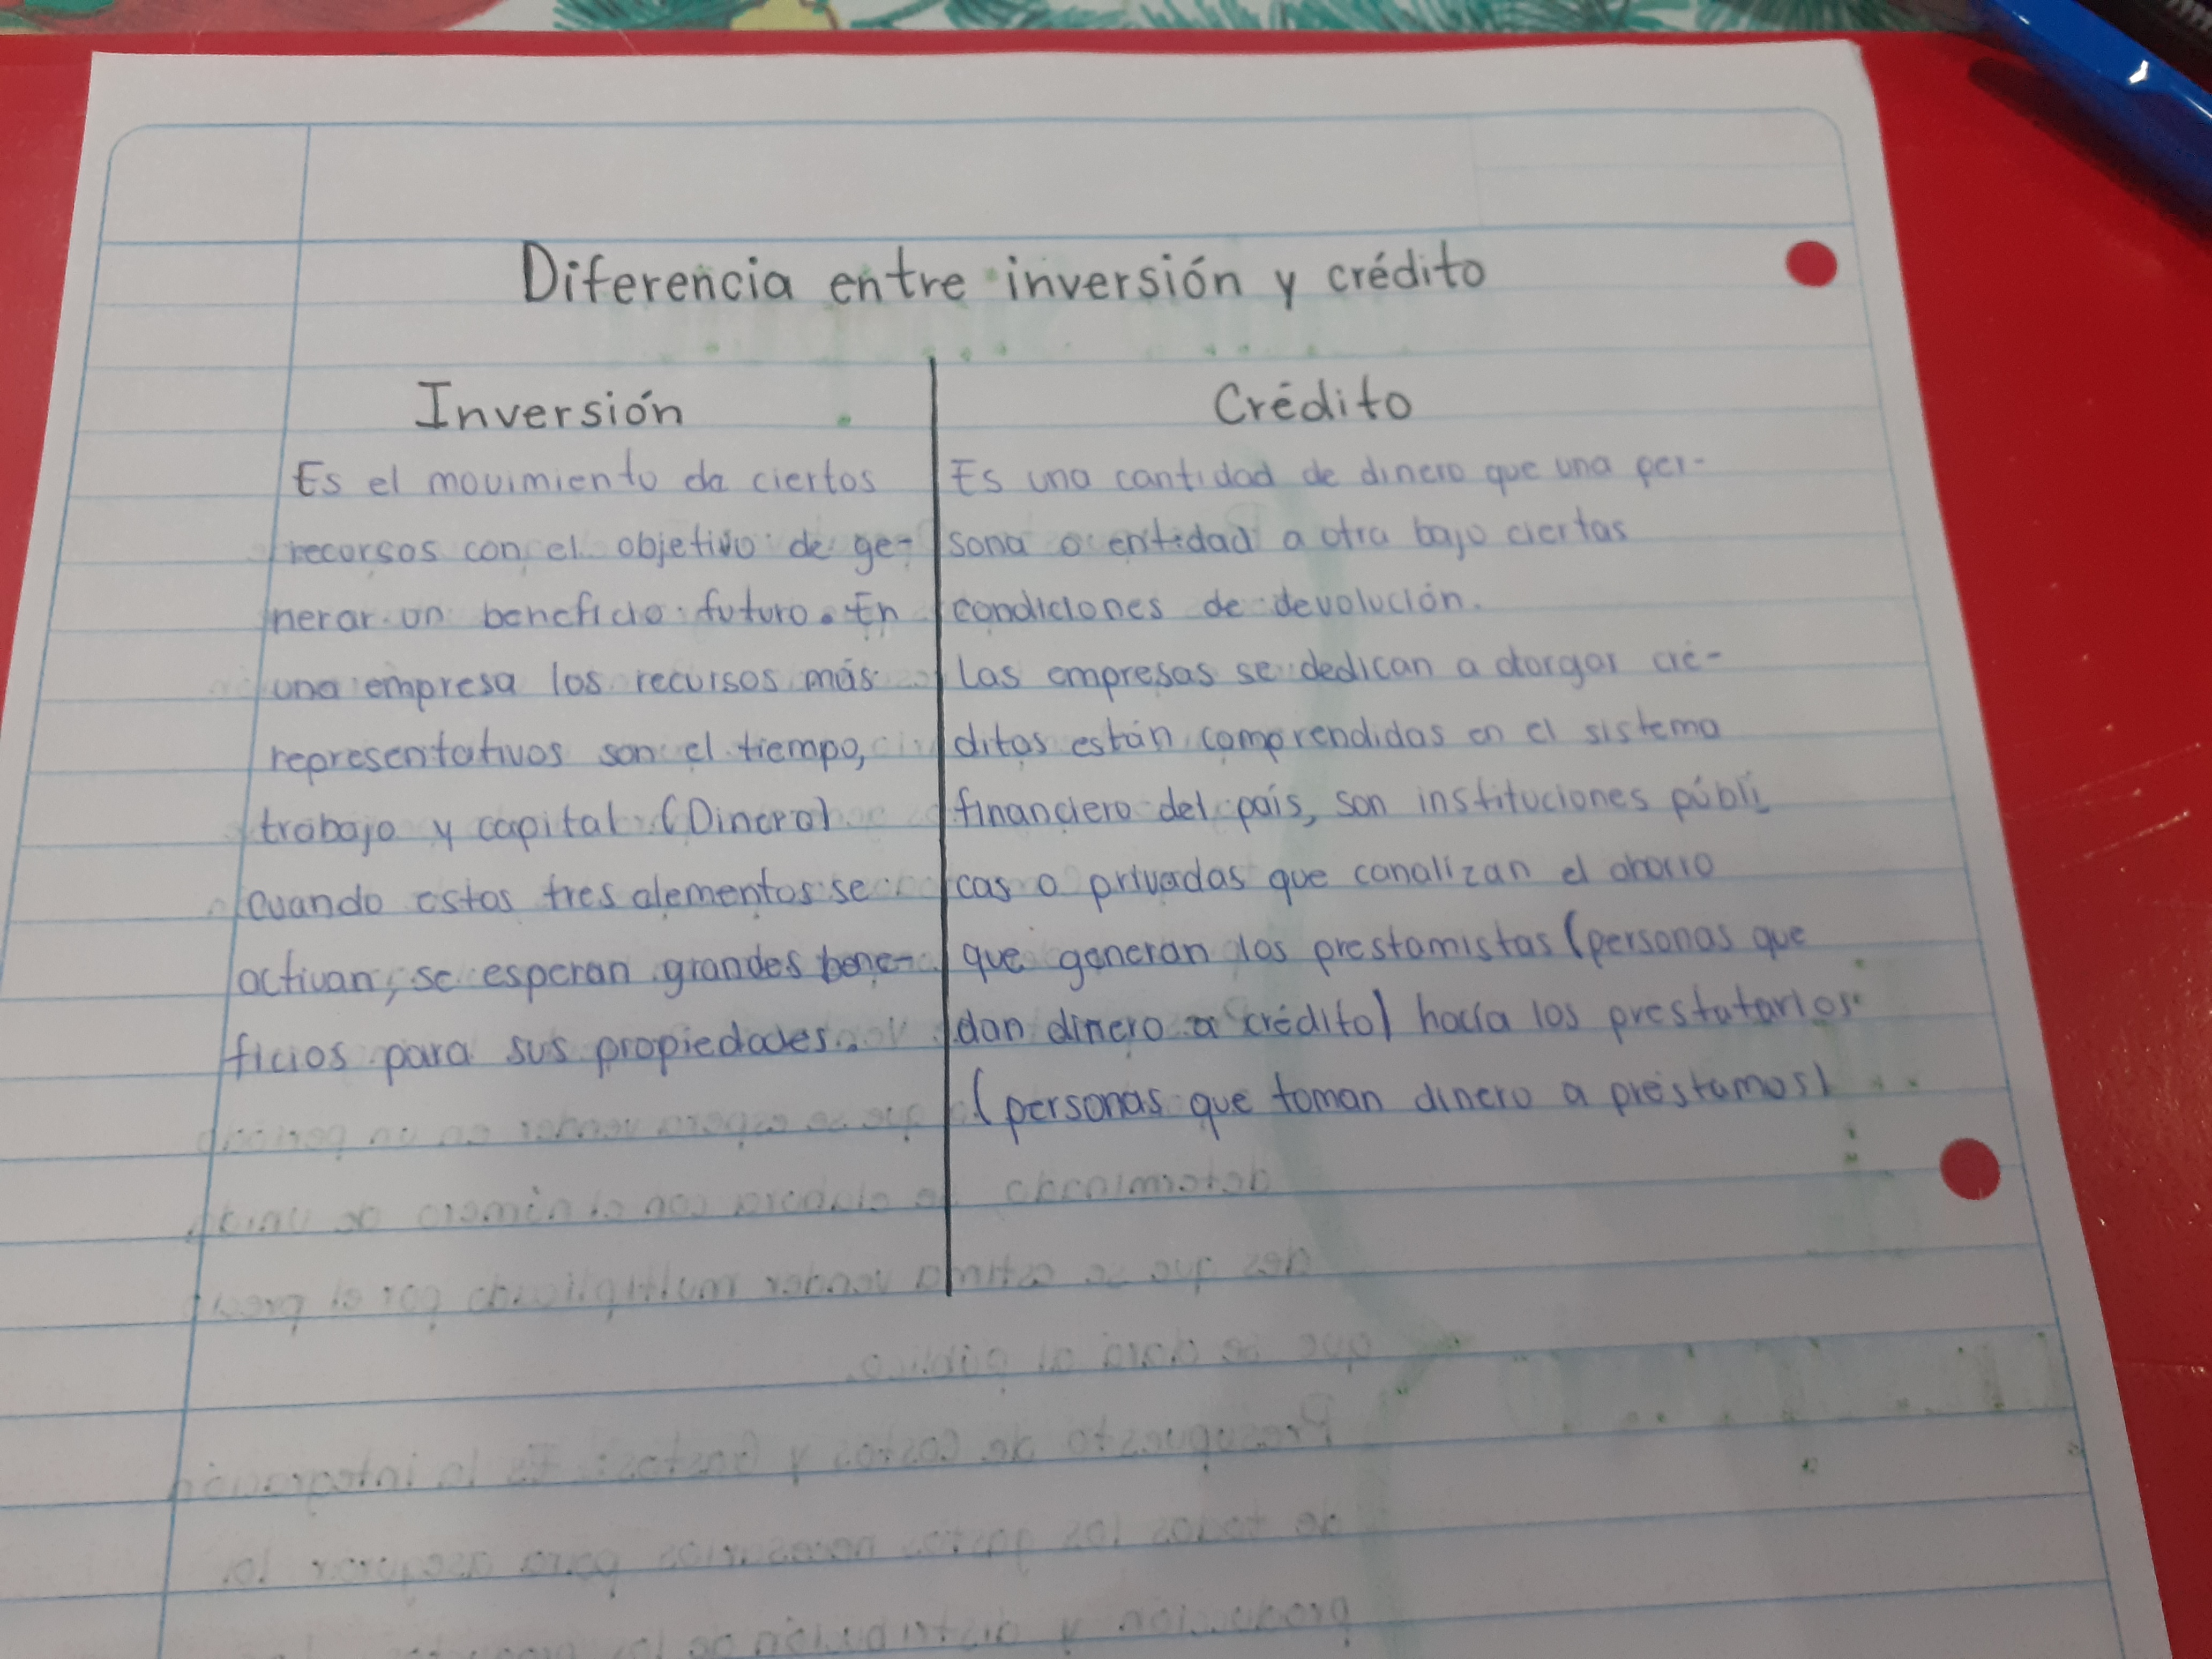 Diferencia entre inversión y crédito
Inversión
Es el movimiento de ciertos
recursos con el objetivo de ge-
nerar un beneficio futuro. En
una empresa los recursos más
representativos son el tiempo,
trabajo y capital (Dinero)
cuando estos tres elementos se
activan, se esperan grandes bene-
ficios para sus propiedades.
Crédito
Es una cantidad de dinero que una per-
sona o entidad a otra bajo ciertas
condiciones de devolución.
Las empresas se dedican a otorgar cré-
ditos están comprendidas en el sistema
financiero del país, son instituciones públi-
cas o privadas que canalizan el ahorro
que generan los prestamistas (personas que
dan dinero a crédito) hacía los prestatarios
(personas que toman dinero a préstamos)